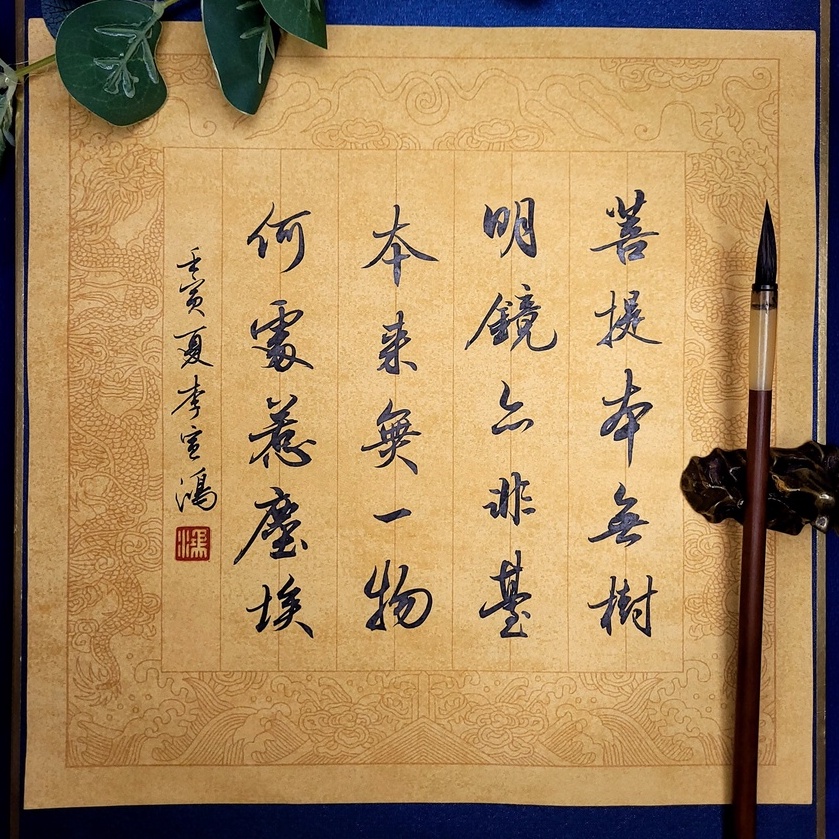 菩提本無樹
明鏡亦非臺
本来無一物
何處惹塵埃
壬寅夏李宣鴻